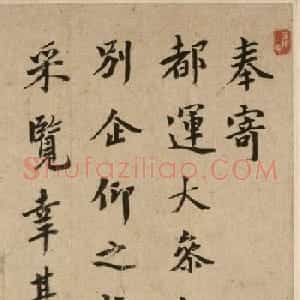 奉寄
都運大叅
別企仰之
采覽幸甚
Shufaziliao.com